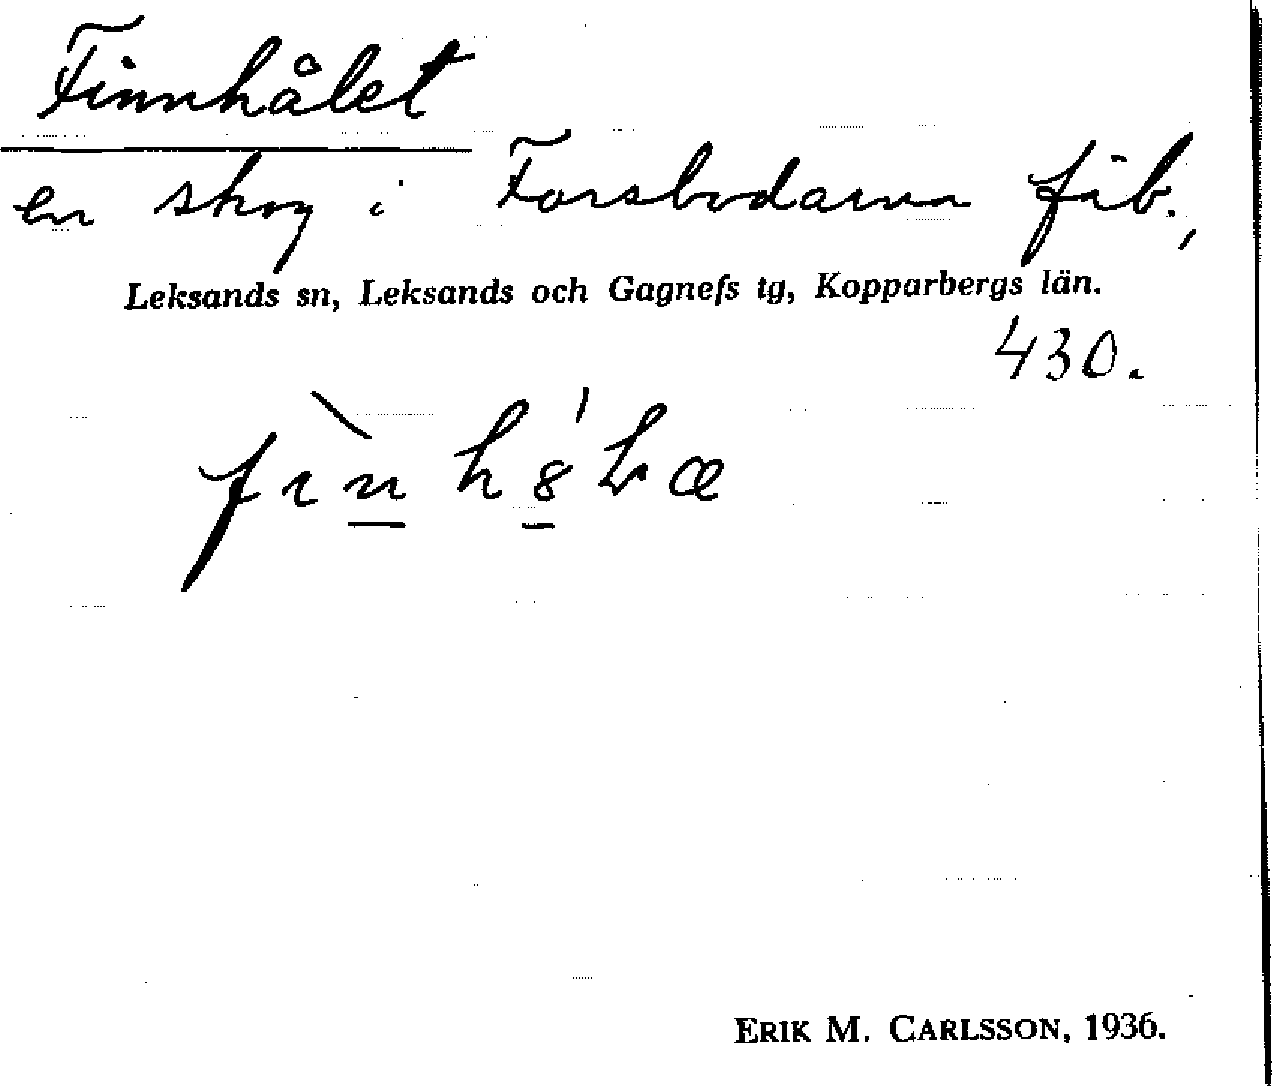 Finnhålet
en skog i Forsbodarna fäb.,
Leksands sn, Leksands och Gagnefs tg, Kopparbergs län.
430.
ERIK M. CARLSSON, 1936.